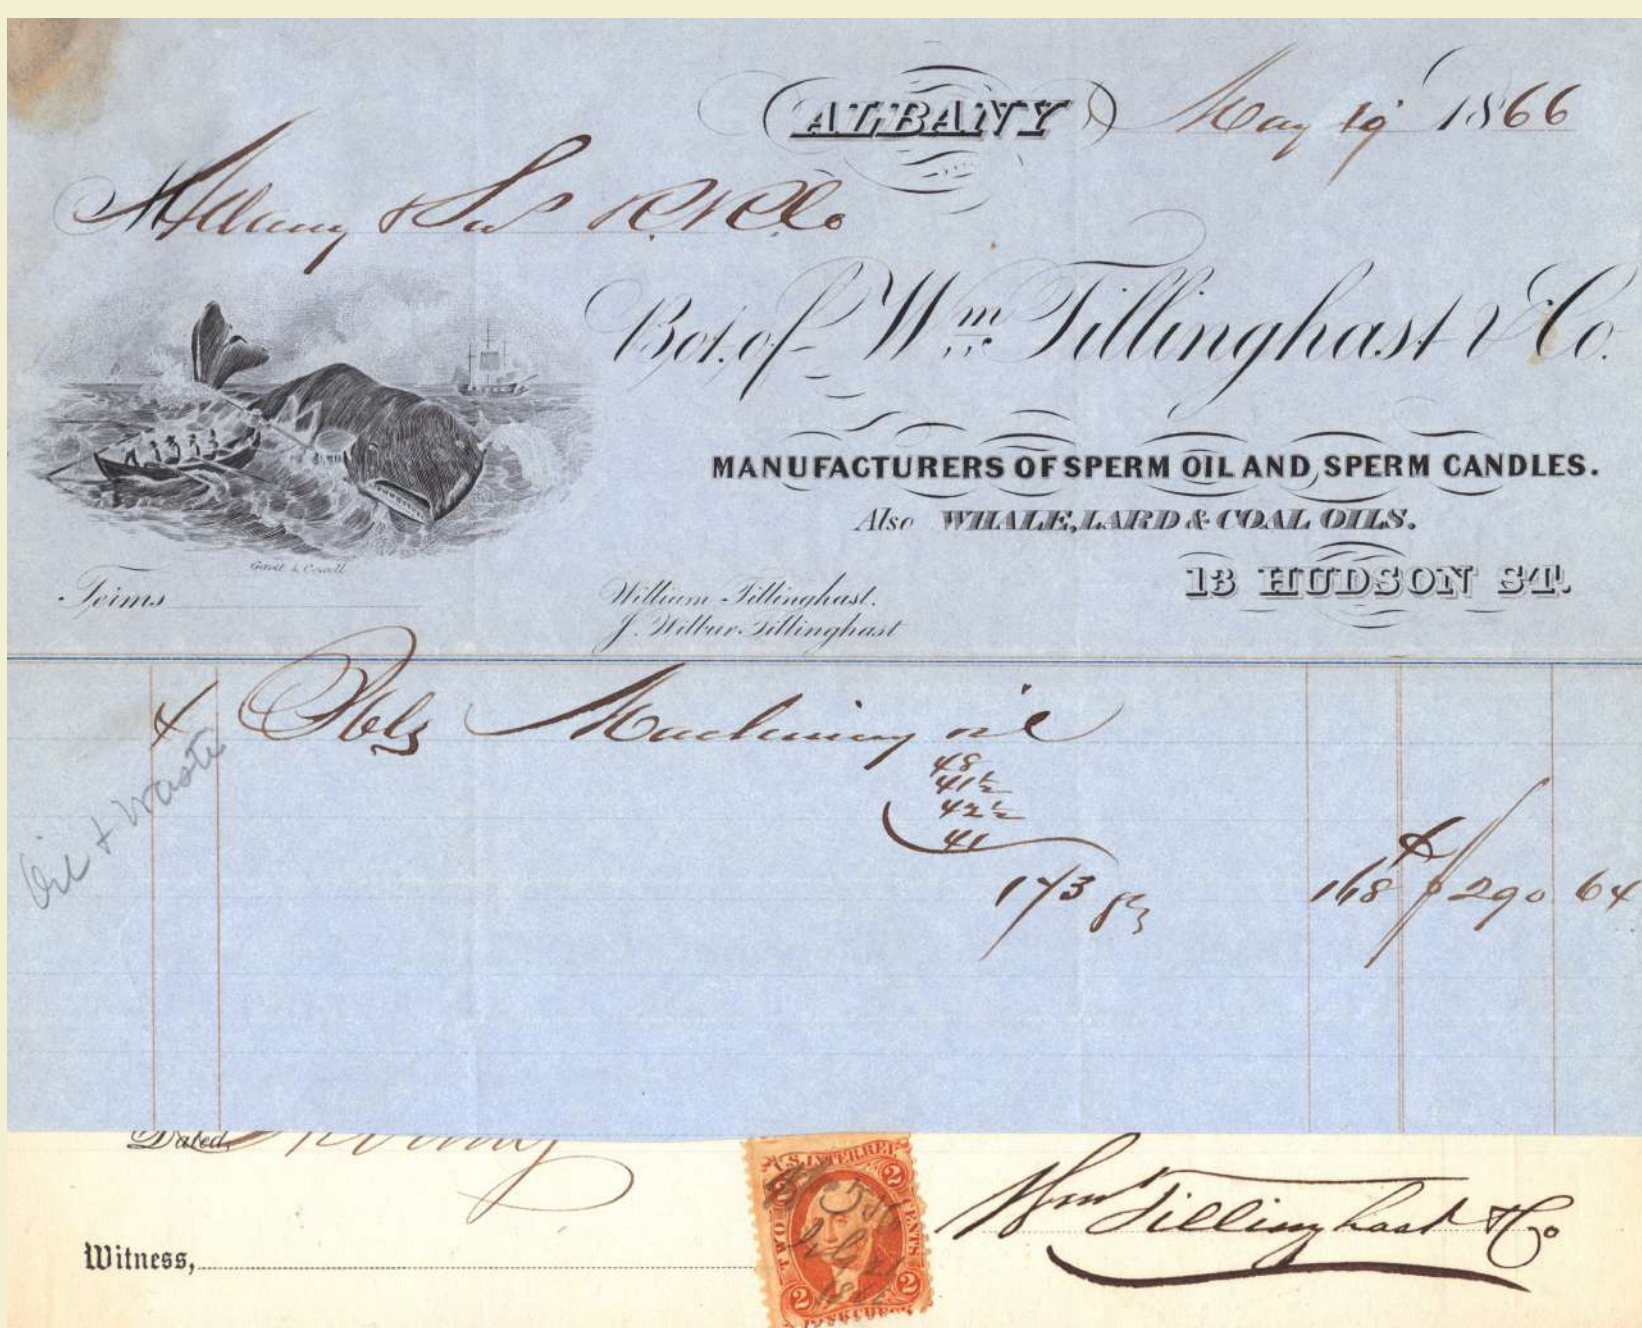 ALBANY May 19 1866
M Albany & Sus R.R.Co
Bot. of Wm Tillinghast & Co.
MANUFACTURERS OF SPERM OIL AND SPERM CANDLES.
Also WHALE, LARD & COAL OILS.
13 HUDSON ST.
Gavit & Cowell
Terms
William Tillinghast.
J. Wilbur Tillinghast
4 Bbls Machinery oil
48
41½
42½
41
173 gs 168 $290 64
Oil + Waste
Dated,
U.S. INTER. REV.
2 2
TWO CENTS
2 2
BANK CHECK
Wm Tillinghast & Co
Witness,